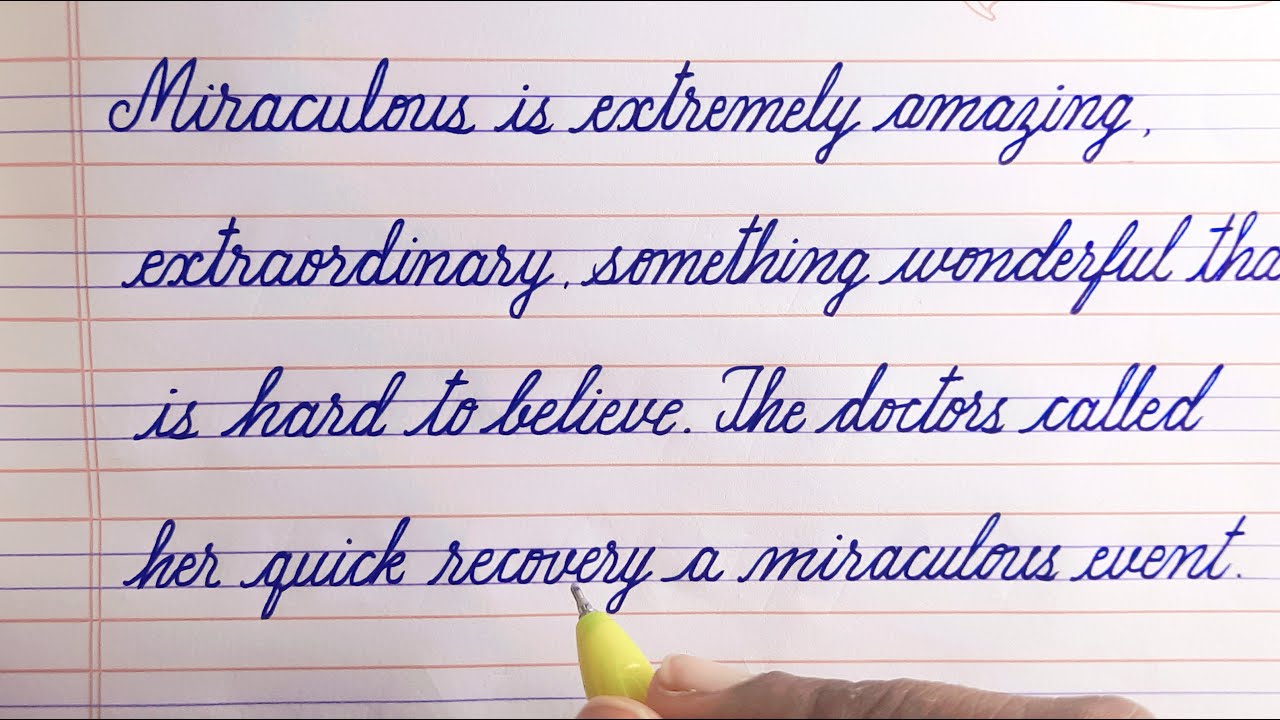 Miraculous is extremely amazing,
extraordinary, something wonderful tha
is hard to believe. The doctors called
her quick recovery a miraculous event.